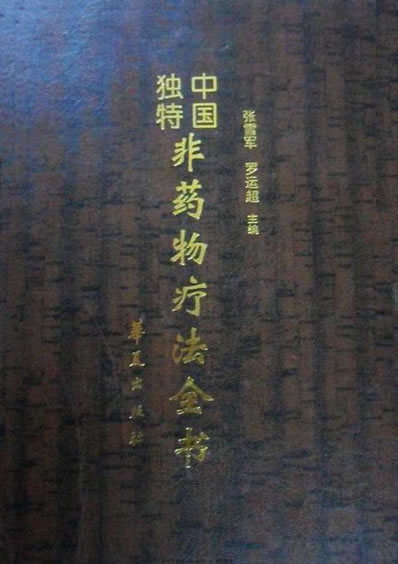 张雪军 罗运超 主编
中国
独特
非药物疗法全书
华夏出版社